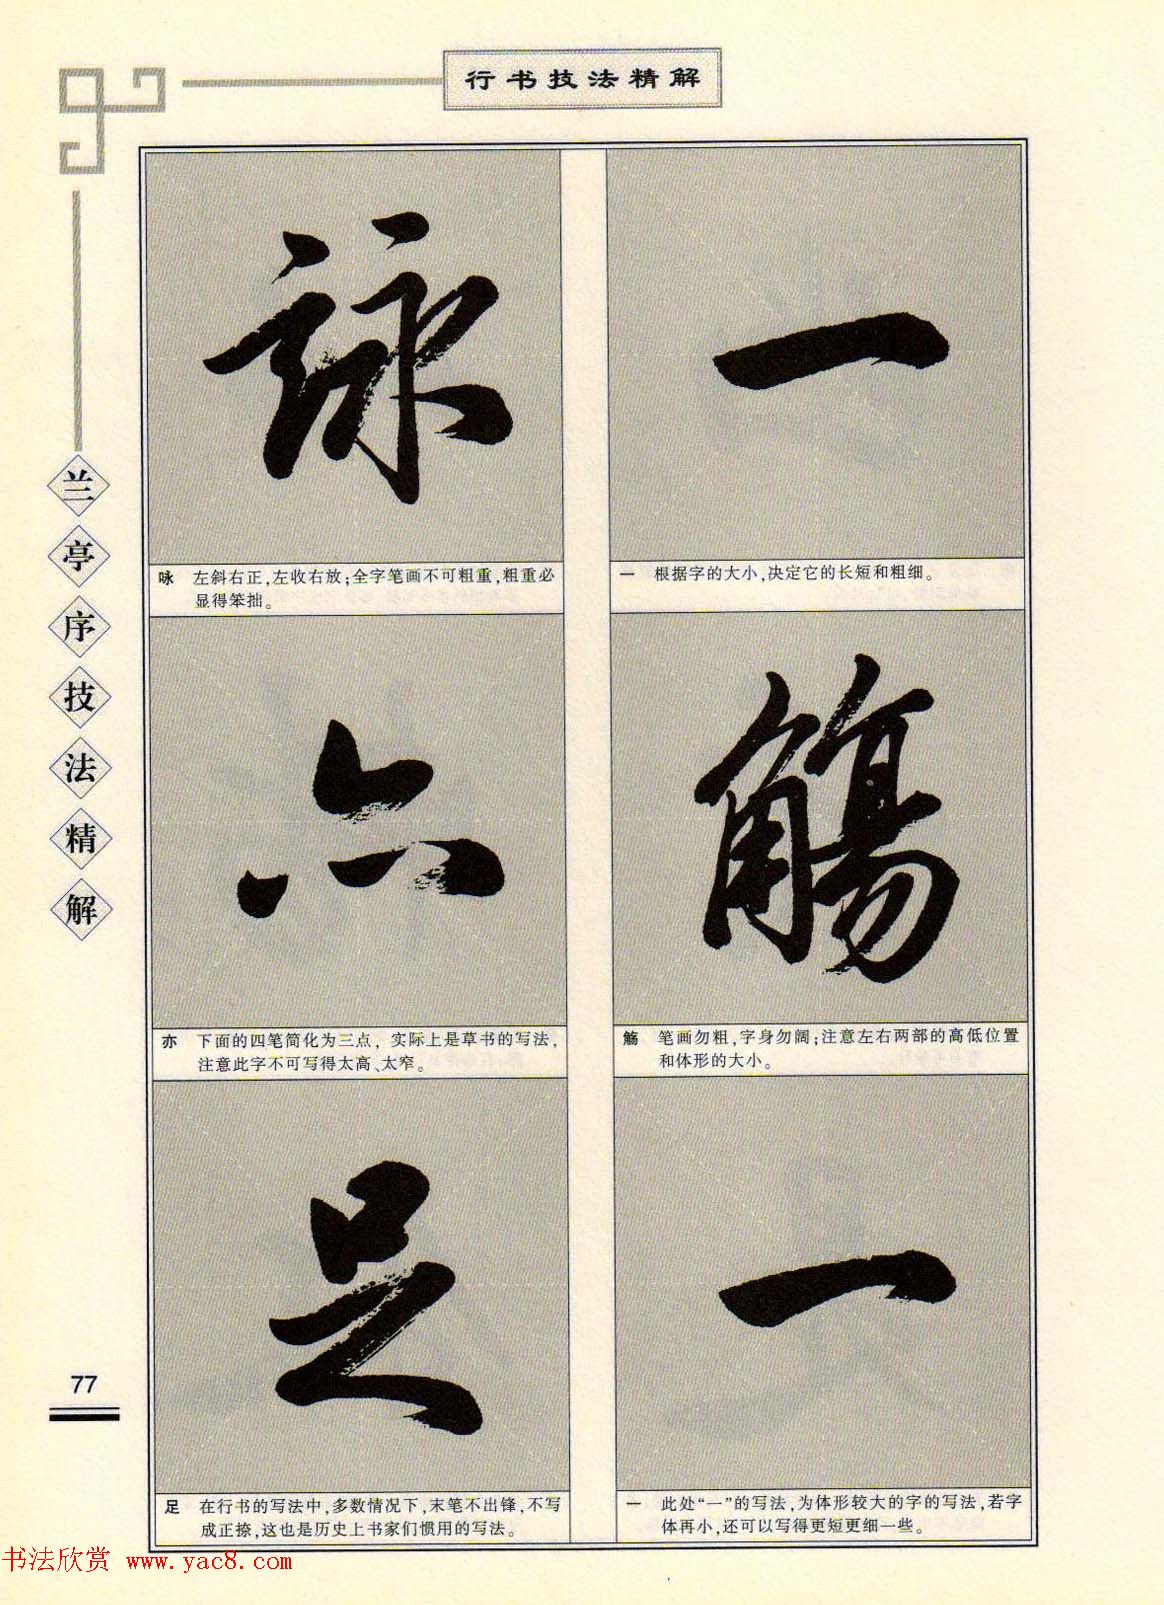 行书技法精解
兰亭序技法精解
一
一 根据字的大小,决定它的长短和粗细。
觞
觞 笔画勿粗,字身勿阔;注意左右两部的高低位置
和体形的大小。
一
一 此处“一”的写法,为体形较大的字的写法,若字
体再小,还可以写得更短更细一些。
詠
咏 左斜右正,左收右放;全字笔画不可粗重,粗重必
显得笨拙。
亦
亦 下面的四笔简化为三点,实际上是草书的写法,
注意此字不可写得太高、太窄。
足
足 在行书的写法中,多数情况下,末笔不出锋,不写
成正捺,这也是历史上书家们惯用的写法。
77
书法欣赏 www.yac8.com